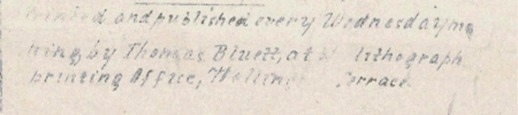 and published every Wednesday mo
ning by Thomas Bluett, at lithograph
printing Office, Terrace